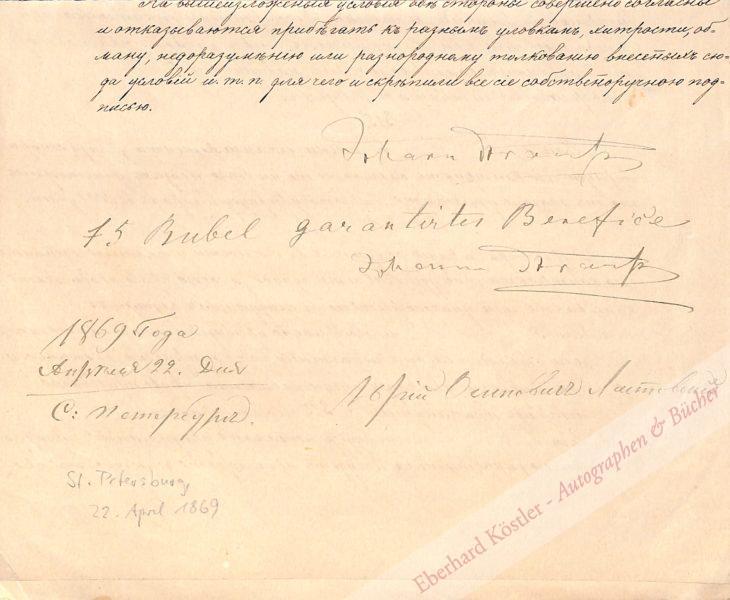 На вышеизложенныя условія обѣ стороны совершено согласны
и отказываются прибѣгать къ разнымъ уловкамъ, хитрости, об-
ману, недоразумѣнію или разнородному толкованію внесенныхъ сю-
да условій и. т. п. для чего и скрѣпили все сіе собственоручною под-
писью.
Johann Strauß
75 Rubel garantirtes Benefice
Johann Strauß
1869 Года
Апреля 22. Дня
С: Петербургъ.
Осиповичъ
St. Petersburg,
22. April 1869
Eberhard Köstler - Autographen & Bücher